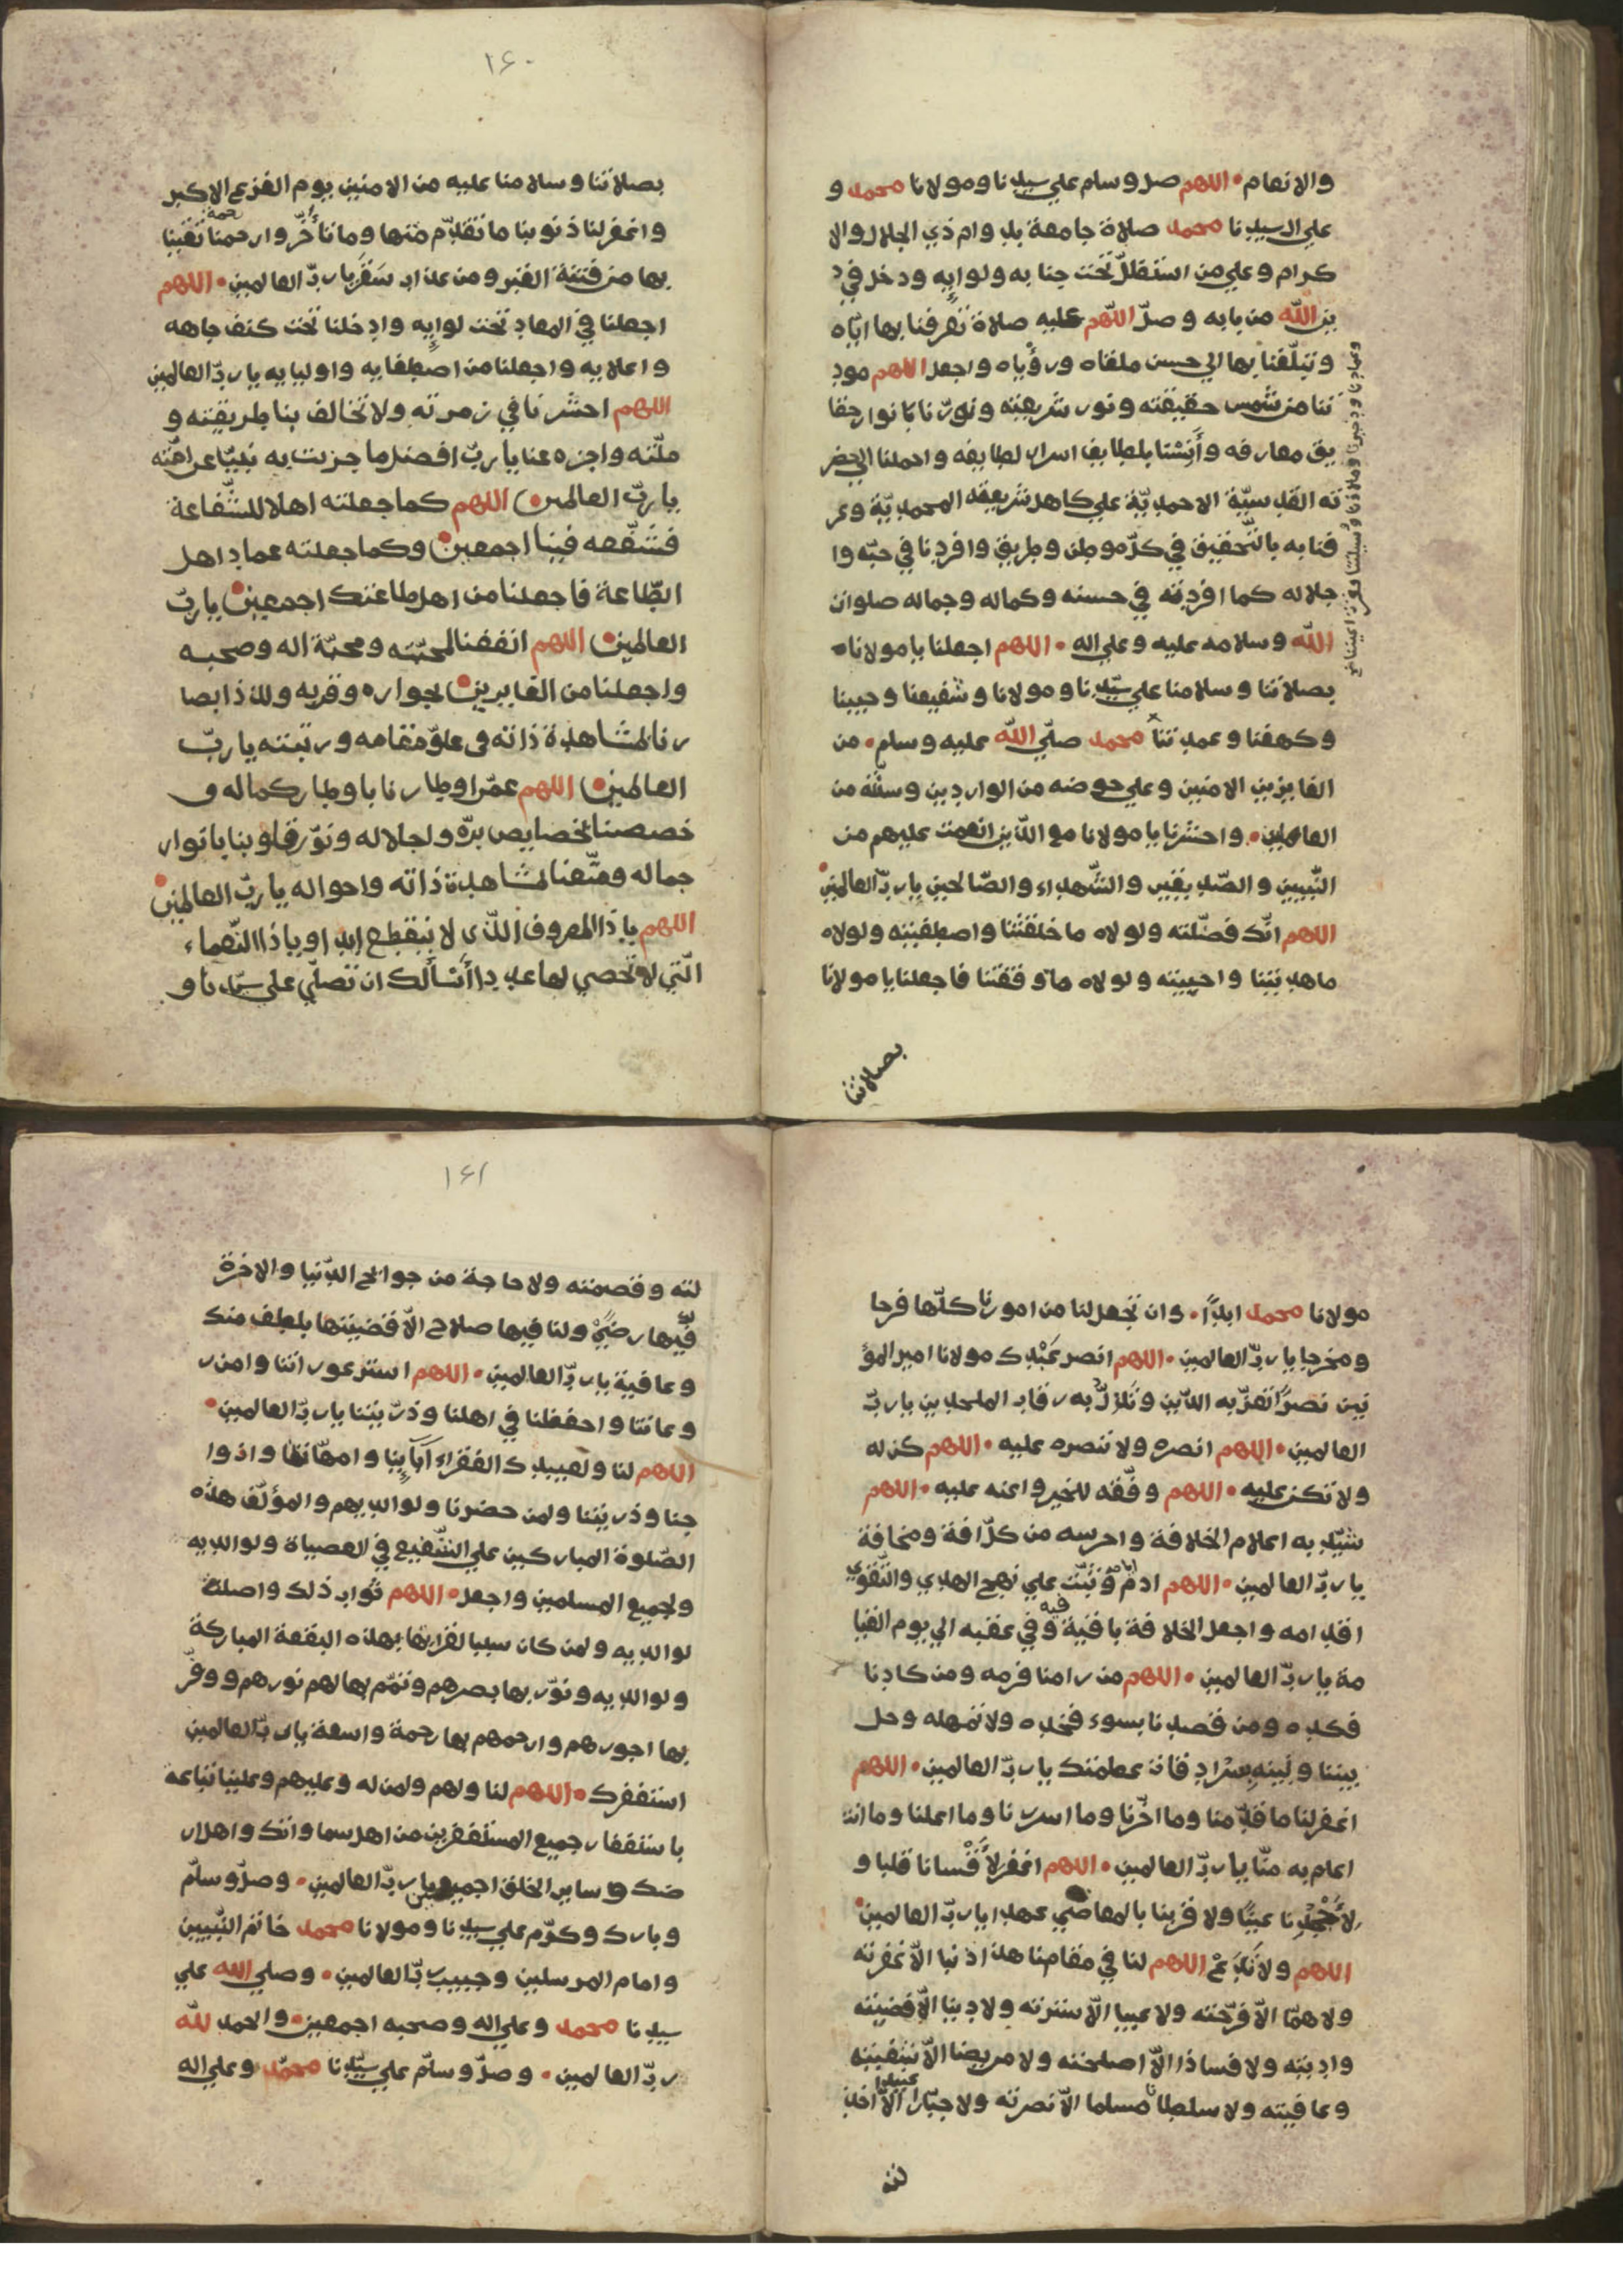 والانعام • اللهم صل وسلم علي سيدنا ومولانا محمد و
علي ال سيدنا محمد صلاة جامعة بدوام ذي الجلال والا
كرام وعلي من استظلّ تحت جنابه ولوايه ودخل في د
ين الله من بابه وصلّ اللهم عليه صلاة تعرفنا بها ايّاه
وتبلّغنا بها الي حسن ملقاه ورؤياه واجعل اللهم مود
تنا من شمس حقيقته ونور شريعته ونورنا بانوار حقا
يق معارفه وأنِسْنا بلطايف اسرار لطايفه واحملنا الي حضر
ته القدسيّة الاحمديّة علي كاهل شريعته المحمديّة وعر
فنا به بالتّحقيق في كلّ موطن وطريق وافردنا في حبّه وا
جلاله كما افردته في حسنه وكماله وجماله صلوات
الله وسلامه عليه وعلي اله • اللهم اجعلنا يا مولانا
بصلاتنا وسلامنا علي سيّدنا ومولانا وشفيعنا وحبيبنا
وكهفنا وعمدتنا محمد صلّي الله عليه وسلم • من
الفايزين الامنين وعلي حوضه من الواردين وسنّته من
العاملين • واحشرنا يا مولانا مع الذين انعمت عليهم من
النّبيين والصّديقين والشّهداء والصّالحين يا ربّ العالمين •
اللهم انّك فضّلته ولولاه ما خلقتنا واصطفيته ولولاه
ما هديتنا واحببته ولولاه ما وفقتنا فاجعلنا يا مولانا
بصلاتنا
وعيادنا وذخرنا وملاذنا ووسيلتنا وقرة اعيننا صح
١٦٠
بصلاتنا وسلامنا عليه من الامنين يوم الفزع الاكبر
واغفر لنا ذنوبنا ما تقدّم منها وما تأخّر وارحمنا رحمة تقينا
بها من فتنة القبر ومن عذاب سَقَر يا ربّ العالمين • اللهم
اجعلنا في المعاد تحت لوايه وادخلنا تحت كنف جاهه
واعلايه واجعلنا من اصطفايه واوليايه يا ربّ العالمين
اللهم احشرنا في زمرته ولا تخالف بنا طريقته و
ملّته واجزه عنا يا ربّ افضل ما جزيت به نبيّا عن امّته
يا ربّ العالمين • اللهم كما جعلته اهلا للشّفاعة
فشفّعه فينا اجمعين • وكما جعلته عماد اهل
الطّاعة فاجعلنا من اهل طاعتك اجمعين • يا ربّ
العالمين • اللهم انفعنا لمحبّته ومحبّة اله وصحبه
واجعلنا من الفايزين • بجواره وقربه ولذاذ ابصا
رنا لمشاهدة ذاته في علوّ مقامه ورتبته يا ربّ
العالمين • اللهم عمّر اوطارنا باوطار كماله و
خصصنا بخصايص برّه واجلاله ونوّر قلوبنا بانوار
جماله ومتّعنا لمشاهدة ذاته واحواله يا ربّ العالمين •
اللهم يا ذا المعروف الّذي لا ينقطع ابدا ويا ذا النّعماء
الّتي لا تحصي لها عددا أسألك ان تصلّي علي سيّدنا و
مولانا محمد ابداً • وان تجعل لنا من امورنا كلّها فرجا
ومخرجا يا ربّ العالمين • اللهم انصر عَبْدك مولانا امير المؤ
نين نصرًا تعزّ به الدّين وتُذِلّ به رقاب الملحدين يا ربّ
العالمين • اللهم انصره ولا تنصره عليه • اللهم كن له
ولا تكن عليه • اللهم وفّقه للخير واعنه عليه • اللهم
شيّد به اعلام الخلافة واحرسه من كلّ افة ومخافة
يا ربّ العالمين • اللهم ادم ايامه وثبّت علي نهج الهدي والتّقوي
اقدامه واجعل الخلافة باقية فيه وفي عقبه الي يوم القيا
مة يا ربّ العالمين • اللهم من رامنا فرمه ومن كادنا
فكده ومن قصدنا بسوء فخذه ولا تمهله وحل
بيننا وبينه بسرادقات عظمتك يا ربّ العالمين • اللهم
اغفر لنا ما قدّمنا وما اخّرنا وما اسررنا وما اعلنا وما انت
اعلم به منّا يا ربّ العالمين • اللهم اغفر لأنفسانا قلبا و
لأجسدنا عيبًا ولا قربنا بالمعاصي عهدا يا ربّ العالمين •
اللهم ولا تَدَعْ اللهم لنا في مقامنا هذا ذنبا الّا غفرته
ولا همّا الّا فرّجته ولا عيبا الّا سترته ولا دينا الّا قضيته
واديته ولا فسادا الّا اصلحته ولا مريضا الّا شفيته
وعافيته ولا سلطانا مسلما الّا نصرته ولا جبّارا عنيدا الّا اخذ
لته
١٦١
لته وقصمته ولا حاجة من حوائج الدّنيا والاخرة
لك فيها رضيً ولنا فيها صلاح الّا قضيتها بلطف منك
وعافية يا ربّ العالمين • اللهم استر عوراتنا وامن ر
وعاتنا واحفظنا في اهلنا وذريّتنا يا ربّ العالمين •
اللهم لنا ولعبيدك الفقراء آبآيِنا وامهّاتنا وازوا
جنا وذريتنا ولمن حضرنا ولوالديهم والمؤلّف هذه
الصّلوة المباركين علي الشّفيع في العصياة ولوالديه
ولجميع المسلمين واجعل • اللهم ثواب ذلك واصلة
لوالديه ولمن كان سببا لقرايتها بهذه البقعة المباركة
ولوالديه ونوّر بها بصرهم وتمّم بها لهم نورهم ووفّر
بها اجورهم وارحمهم بها رحمة واسعة يا ربّ العالمين
استغفرك • اللهم لنا ولهم ولمن له وعليهم وعلينا تباعة
باستغفار جميع المستغفرين من اهل سماواتك واهل ار
ضك وساير الخلق اجمعين يا ربّ العالمين • وصلّ وسلّم
وبارك وكرّم علي سيدنا ومولانا محمد خاتم النّبيين
وامام المرسلين وحبيب ربّ العالمين • وصلي الله علي
سيدنا محمد وعلي اله وصحبه اجمعين • والحمد لله
ربّ العالمين • وصلّ وسلّم علي سيّدنا محمّد وعلي اله